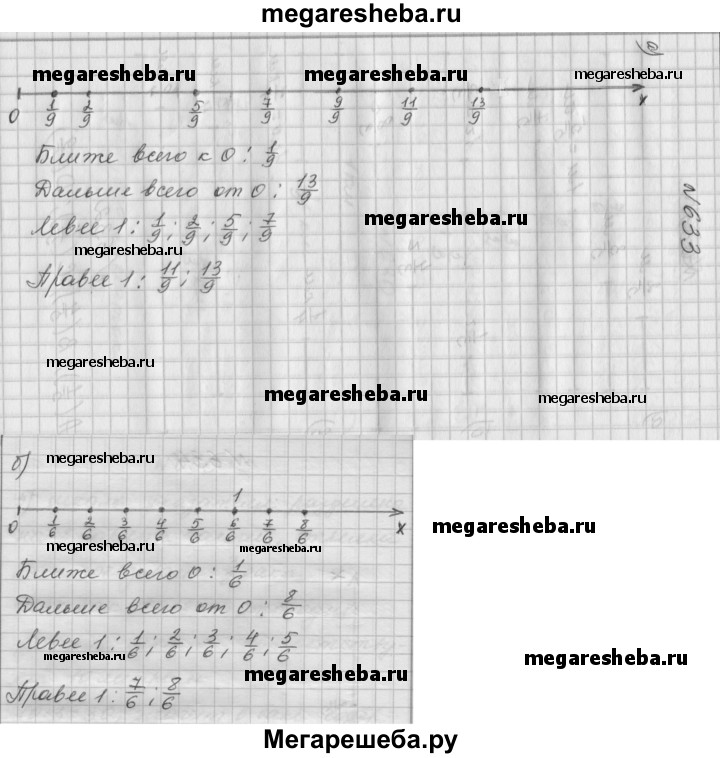 megaresheba.ru
а)
№633
megaresheba.ru megaresheba.ru megaresheba.ru
0 1/9 2/9 5/9 7/9 9/9 11/9 13/9 x
Ближе всего к 0: 1/9
Дальше всего от 0: 13/9
megaresheba.ru
Левее 1: 1/9; 2/9; 5/9; 7/9
megaresheba.ru
Правее 1: 11/9; 13/9
megaresheba.ru
megaresheba.ru megaresheba.ru
б) megaresheba.ru
1
0 1/6 2/6 3/6 4/6 5/6 6/6 7/6 8/6 x
megaresheba.ru megaresheba.ru megaresheba.ru
Ближе всего 0: 1/6
Дальше всего от 0: 8/6
Левее 1: 1/6; 2/6; 3/6; 4/6; 5/6
megaresheba.ru megaresheba.ru megaresheba.ru
Правее 1: 7/6; 8/6
Мегарешеба.ру